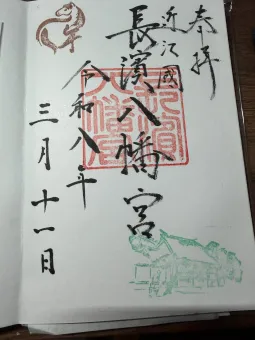 奉拝
近江國
長濱八幡宮
令和八年
三月十一日